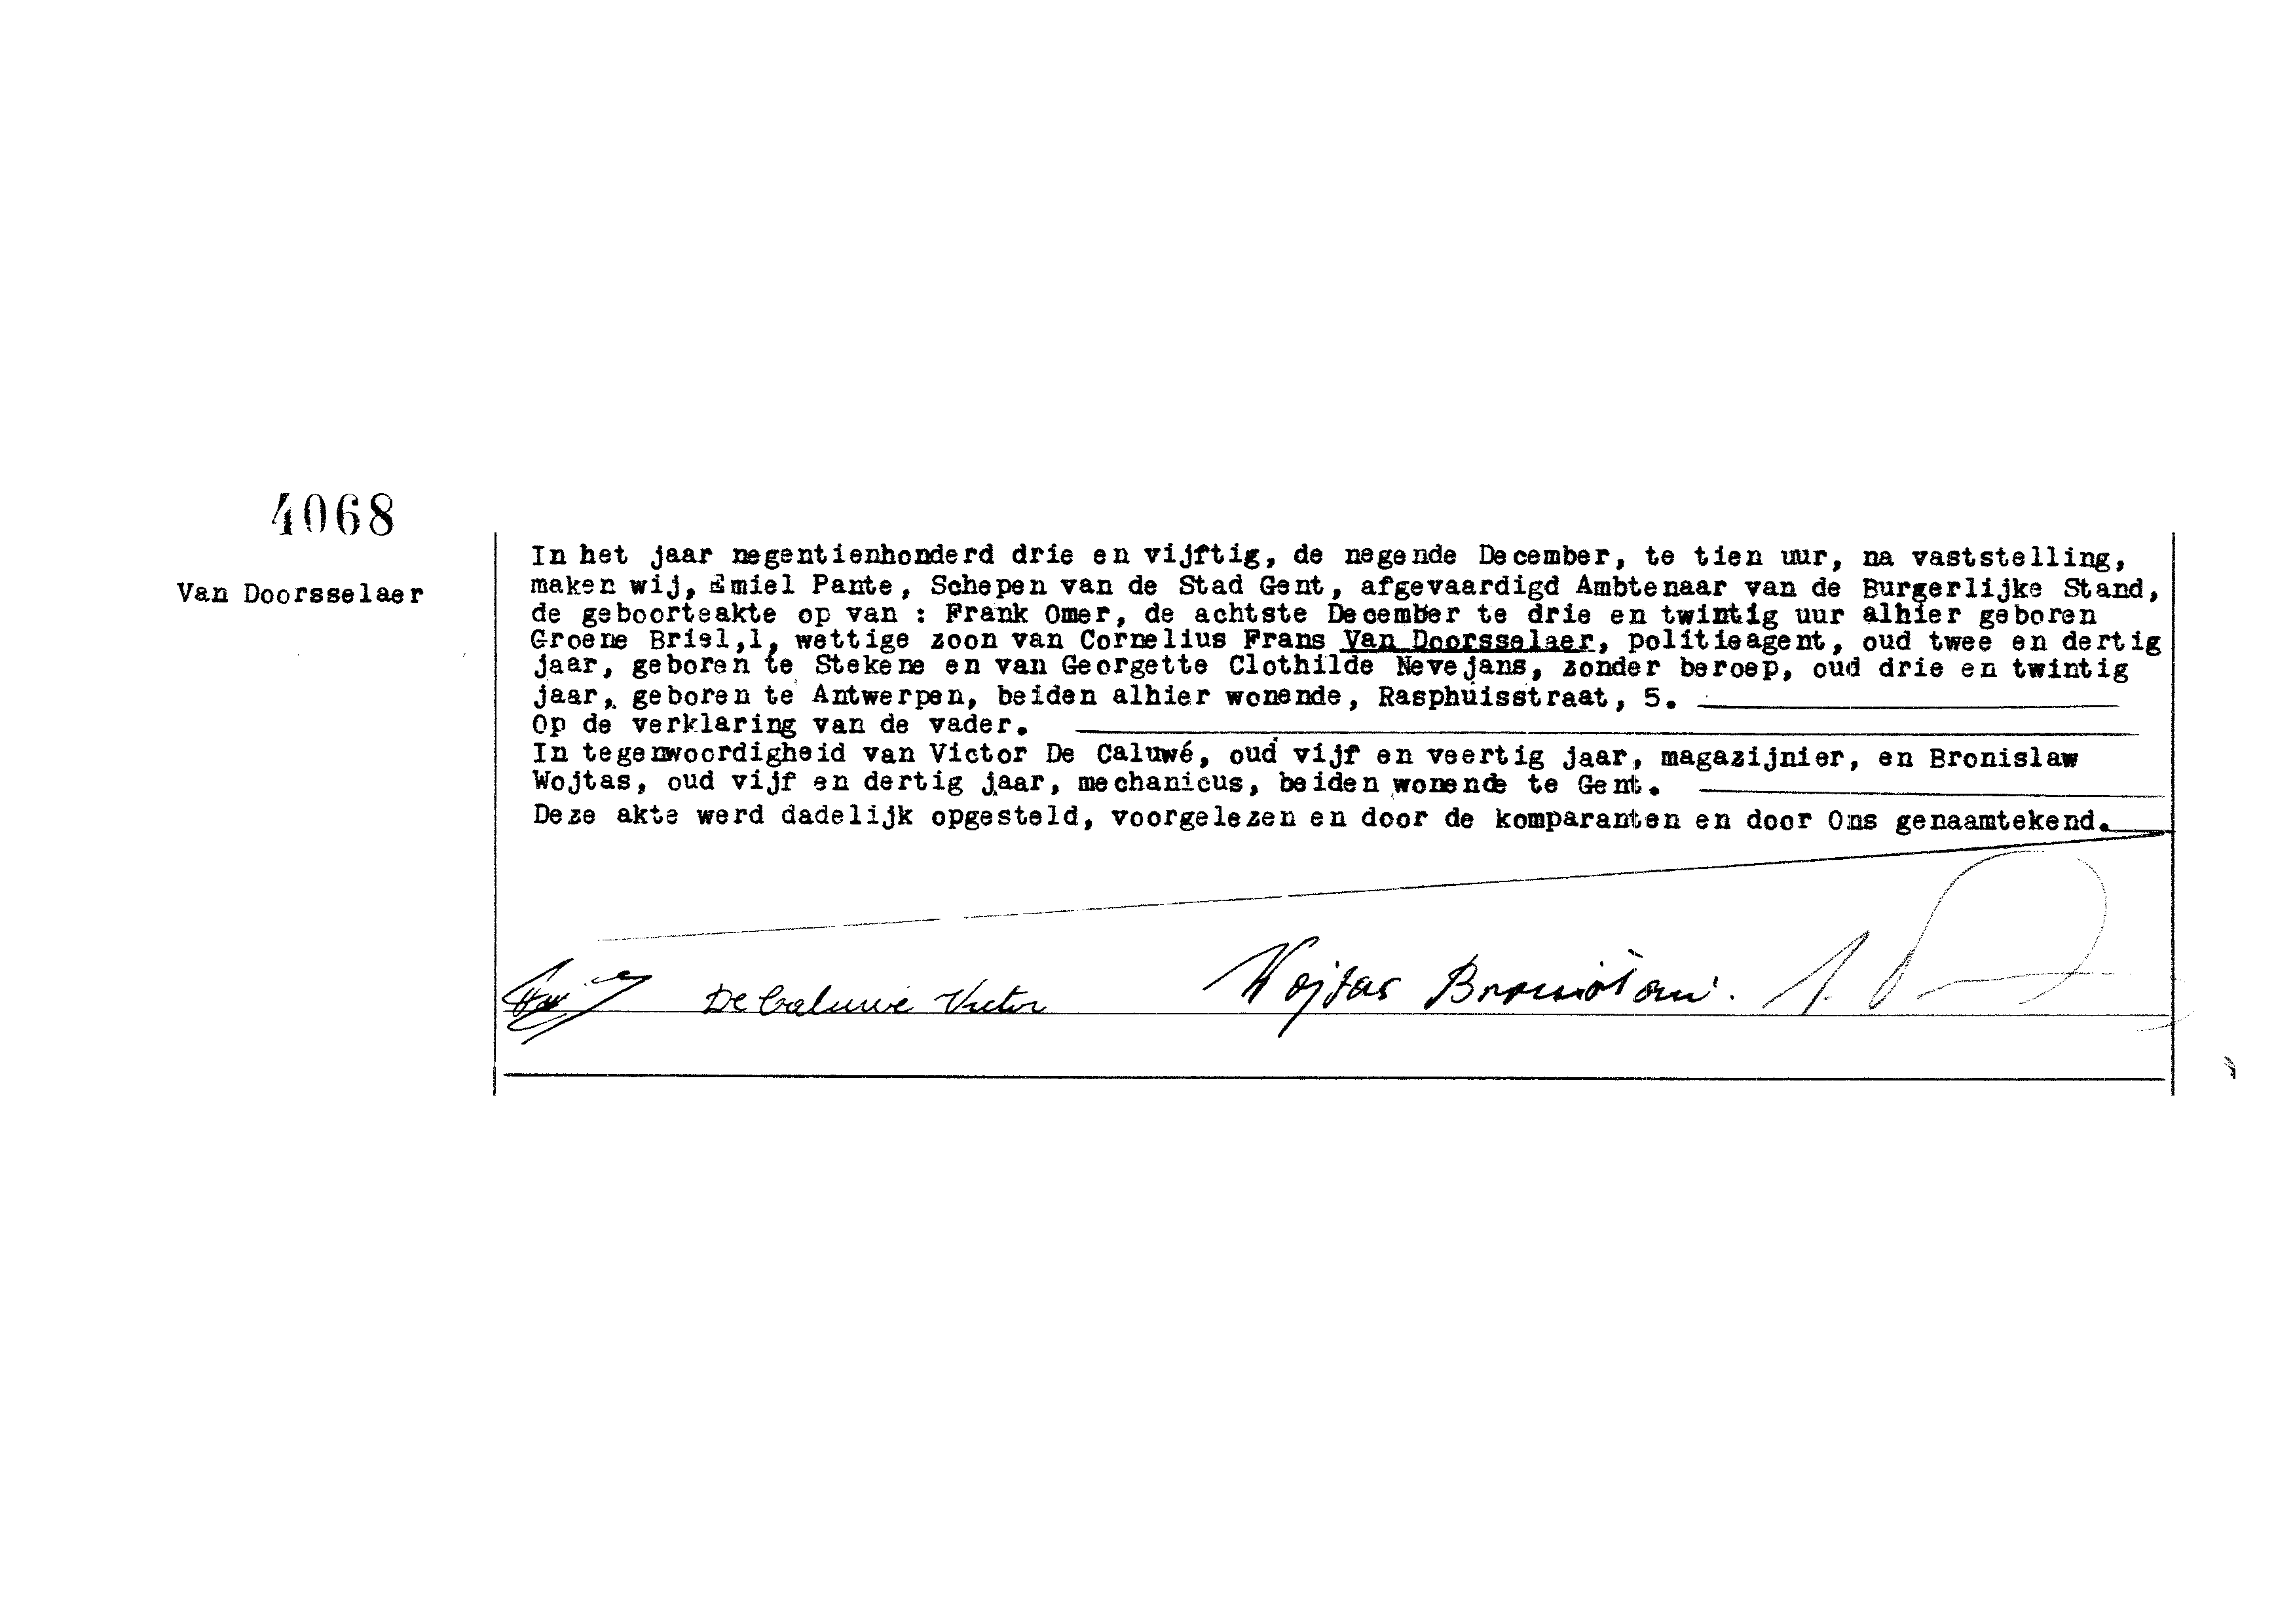 4068
Van Doorsselaer
In het jaar negentienhonderd drie en vijftig, de negende December, te tien uur, na vaststelling,
maken wij, Emiel Pante, Schepen van de Stad Gent, afgevaardigd Ambtenaar van de Burgerlijke Stand,
de geboorteakte op van : Frank Omer, de achtste December te drie en twintig uur alhier geboren
Groene Briel,1, wettige zoon van Cornelius Frans Van Doorsselaer, politieagent, oud twee en dertig
jaar, geboren te Stekene en van Georgette Clothilde Nevejans, zonder beroep, oud drie en twintig
jaar, geboren te Antwerpen, beiden alhier wonende, Rasphuisstraat, 5.
Op de verklaring van de vader.
In tegenwoordigheid van Victor De Caluwé, oud vijf en veertig jaar, magazijnier, en Bronislaw
Wojtas, oud vijf en dertig jaar, mechanicus, beiden wonende te Gent.
Deze akte werd dadelijk opgesteld, voorgelezen en door de komparanten en door Ons genaamtekend.
De Caluwé Victor Wojtas